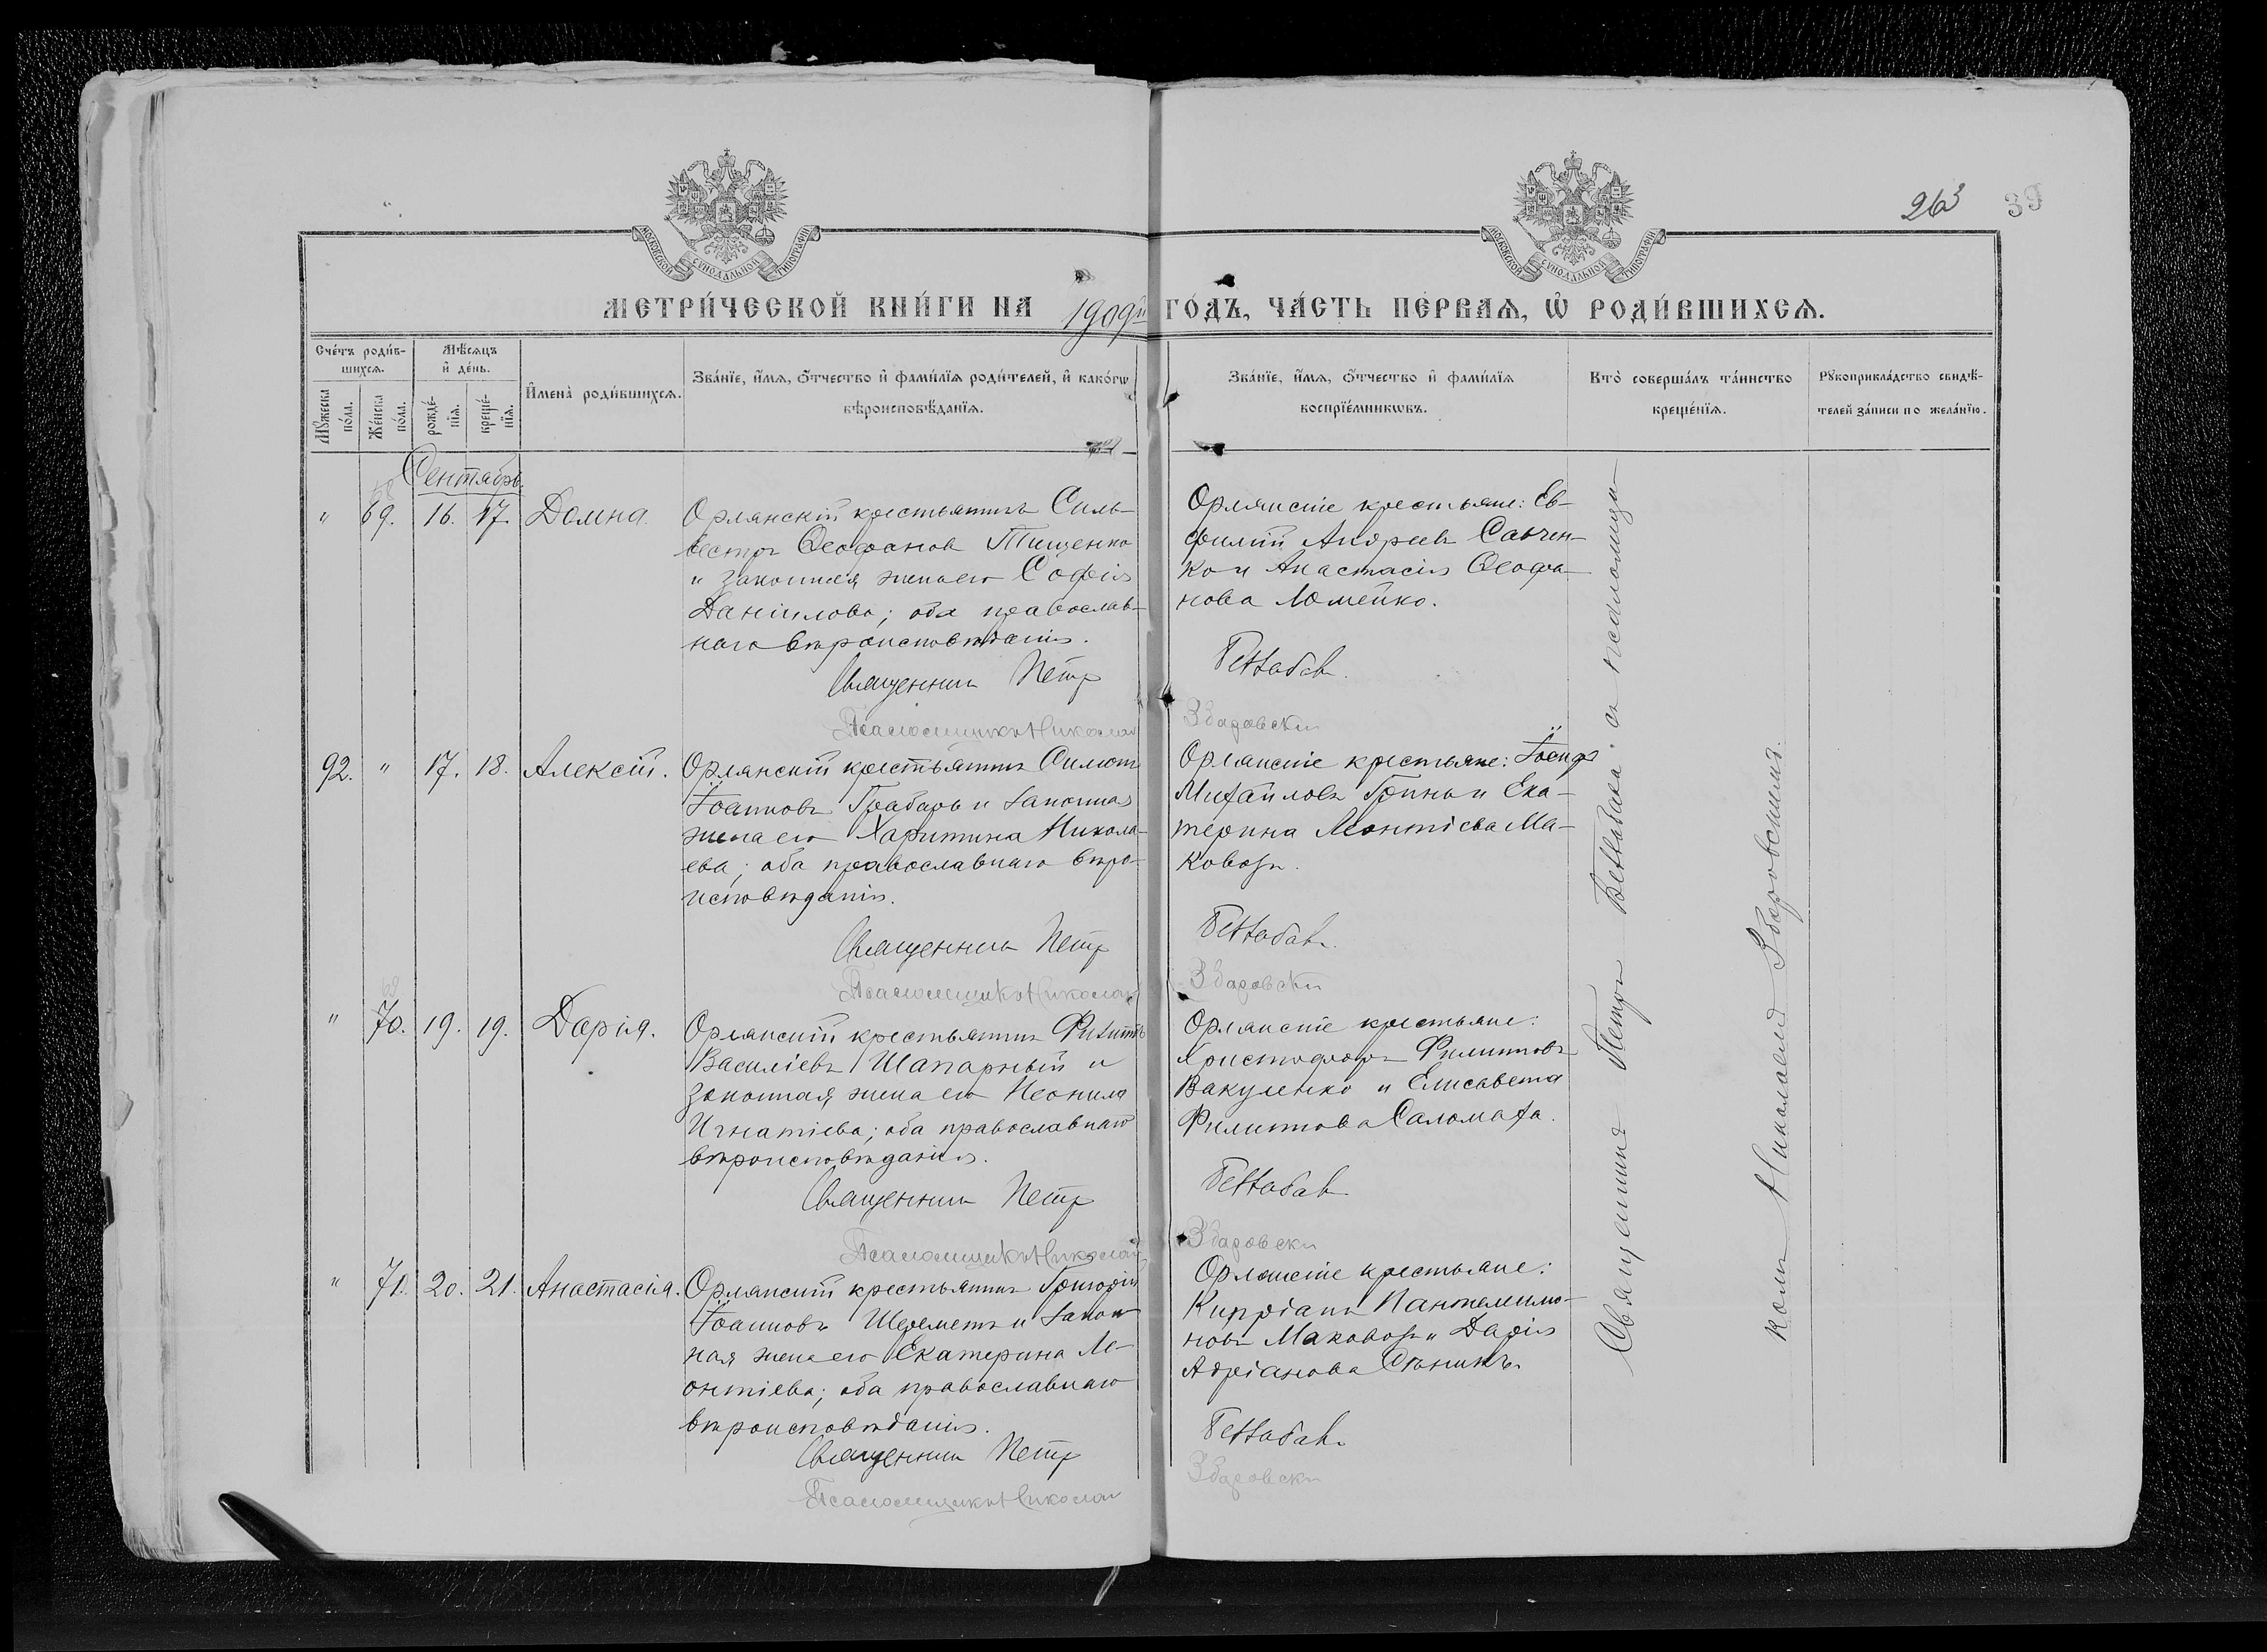 263 39
МОСКОВСКОЙ СѴНОДАЛЬНОЙ ТИПОГРАФІИ
МОСКОВСКОЙ СѴНОДАЛЬНОЙ ТИПОГРАФІИ
МЕТРИ́ЧЕСКОЙ КНИ́ГИ НА 1909й ГО́ДЪ, ЧА́СТЬ ПЕ́РВАѦ, Ѽ РОДИ́ВШИХСѦ.
Сче́тъ роди́в-
шихсѧ.
Мꙋ́жеска
по́ла.
Же́нска
по́ла.
Мѣ́сѧцъ
и҆ де́нь.
рожде́-
нїѧ.
креще́-
нїѧ.
И҆мена̀ роди́вшихсѧ.
Зва́нїе, и҆́мѧ, ѻ҆́тчество и҆ фами́лїѧ роди́телей, и҆ како́гѡ
вѣроисповѣ́данїѧ.
Зва́нїе, и҆́мѧ, ѻ҆́тчество и҆ фами́лїѧ
воспрїе́мникѡвъ.
Кто̀ соверша́лъ та́инство
креще́нїѧ.
Рꙋкоприкла́дство свидѣ́-
телей за́писи по жела́нїю.
Сентябрь.
68
" 69. 16. 17. Домна.
Орлянскій крестьянинъ Силь-
вестръ Ѳеофановъ Тищенко
и законная жена его Софія
Даніилова; оба православ-
наго вѣроисповѣданія.
Священникъ Петръ
Псаломщикъ Николай
Орлянскіе крестьяне: Ев-
фимій Андреевъ Савчен-
ко и Анастасія Ѳеофа-
нова Ломейко.
Збаровскій
92. " 17. 18. Алексій.
Орлянскій крестьянинъ
Іоанновъ Грабарь и законная
жена его Харитина Никола-
ева; оба православнаго вѣро-
исповѣданія.
Священникъ Петръ
Псаломщикъ Николай
Орлянскіе крестьяне:
Михайловъ Гринь и Ека-
терина Леонтіева Ма-
ковозъ.
Збаровскій
69
" 70. 19. 19. Дарія.
Орлянскій крестьянинъ Филиппъ
Василіевъ Шапарный и
законная жена его Неонила
Игнатіева; оба православнаго
вѣроисповѣданія.
Священникъ Петръ
Псаломщикъ Николай
Орлянскіе крестьяне:
Христофоръ Филипповъ
Вакуленко и Елисавета
Филиппова Саломаха.
Збаровскій
" 71. 20. 21. Анастасія.
Орлянскій крестьянинъ Григорій
Іоанновъ Шереметъ и закон-
ная жена его Екатерина Ле-
онтіева; оба православнаго
вѣроисповѣданія.
Священникъ Петръ
Псаломщикъ Николай
Орлянскіе крестьяне:
Кипріанъ Пантелеимо-
новъ Маковозъ и Дарія
Адріанова
Збаровскій
Священникъ Петръ съ псаломщи-
комъ Николаемъ Збаровскимъ.